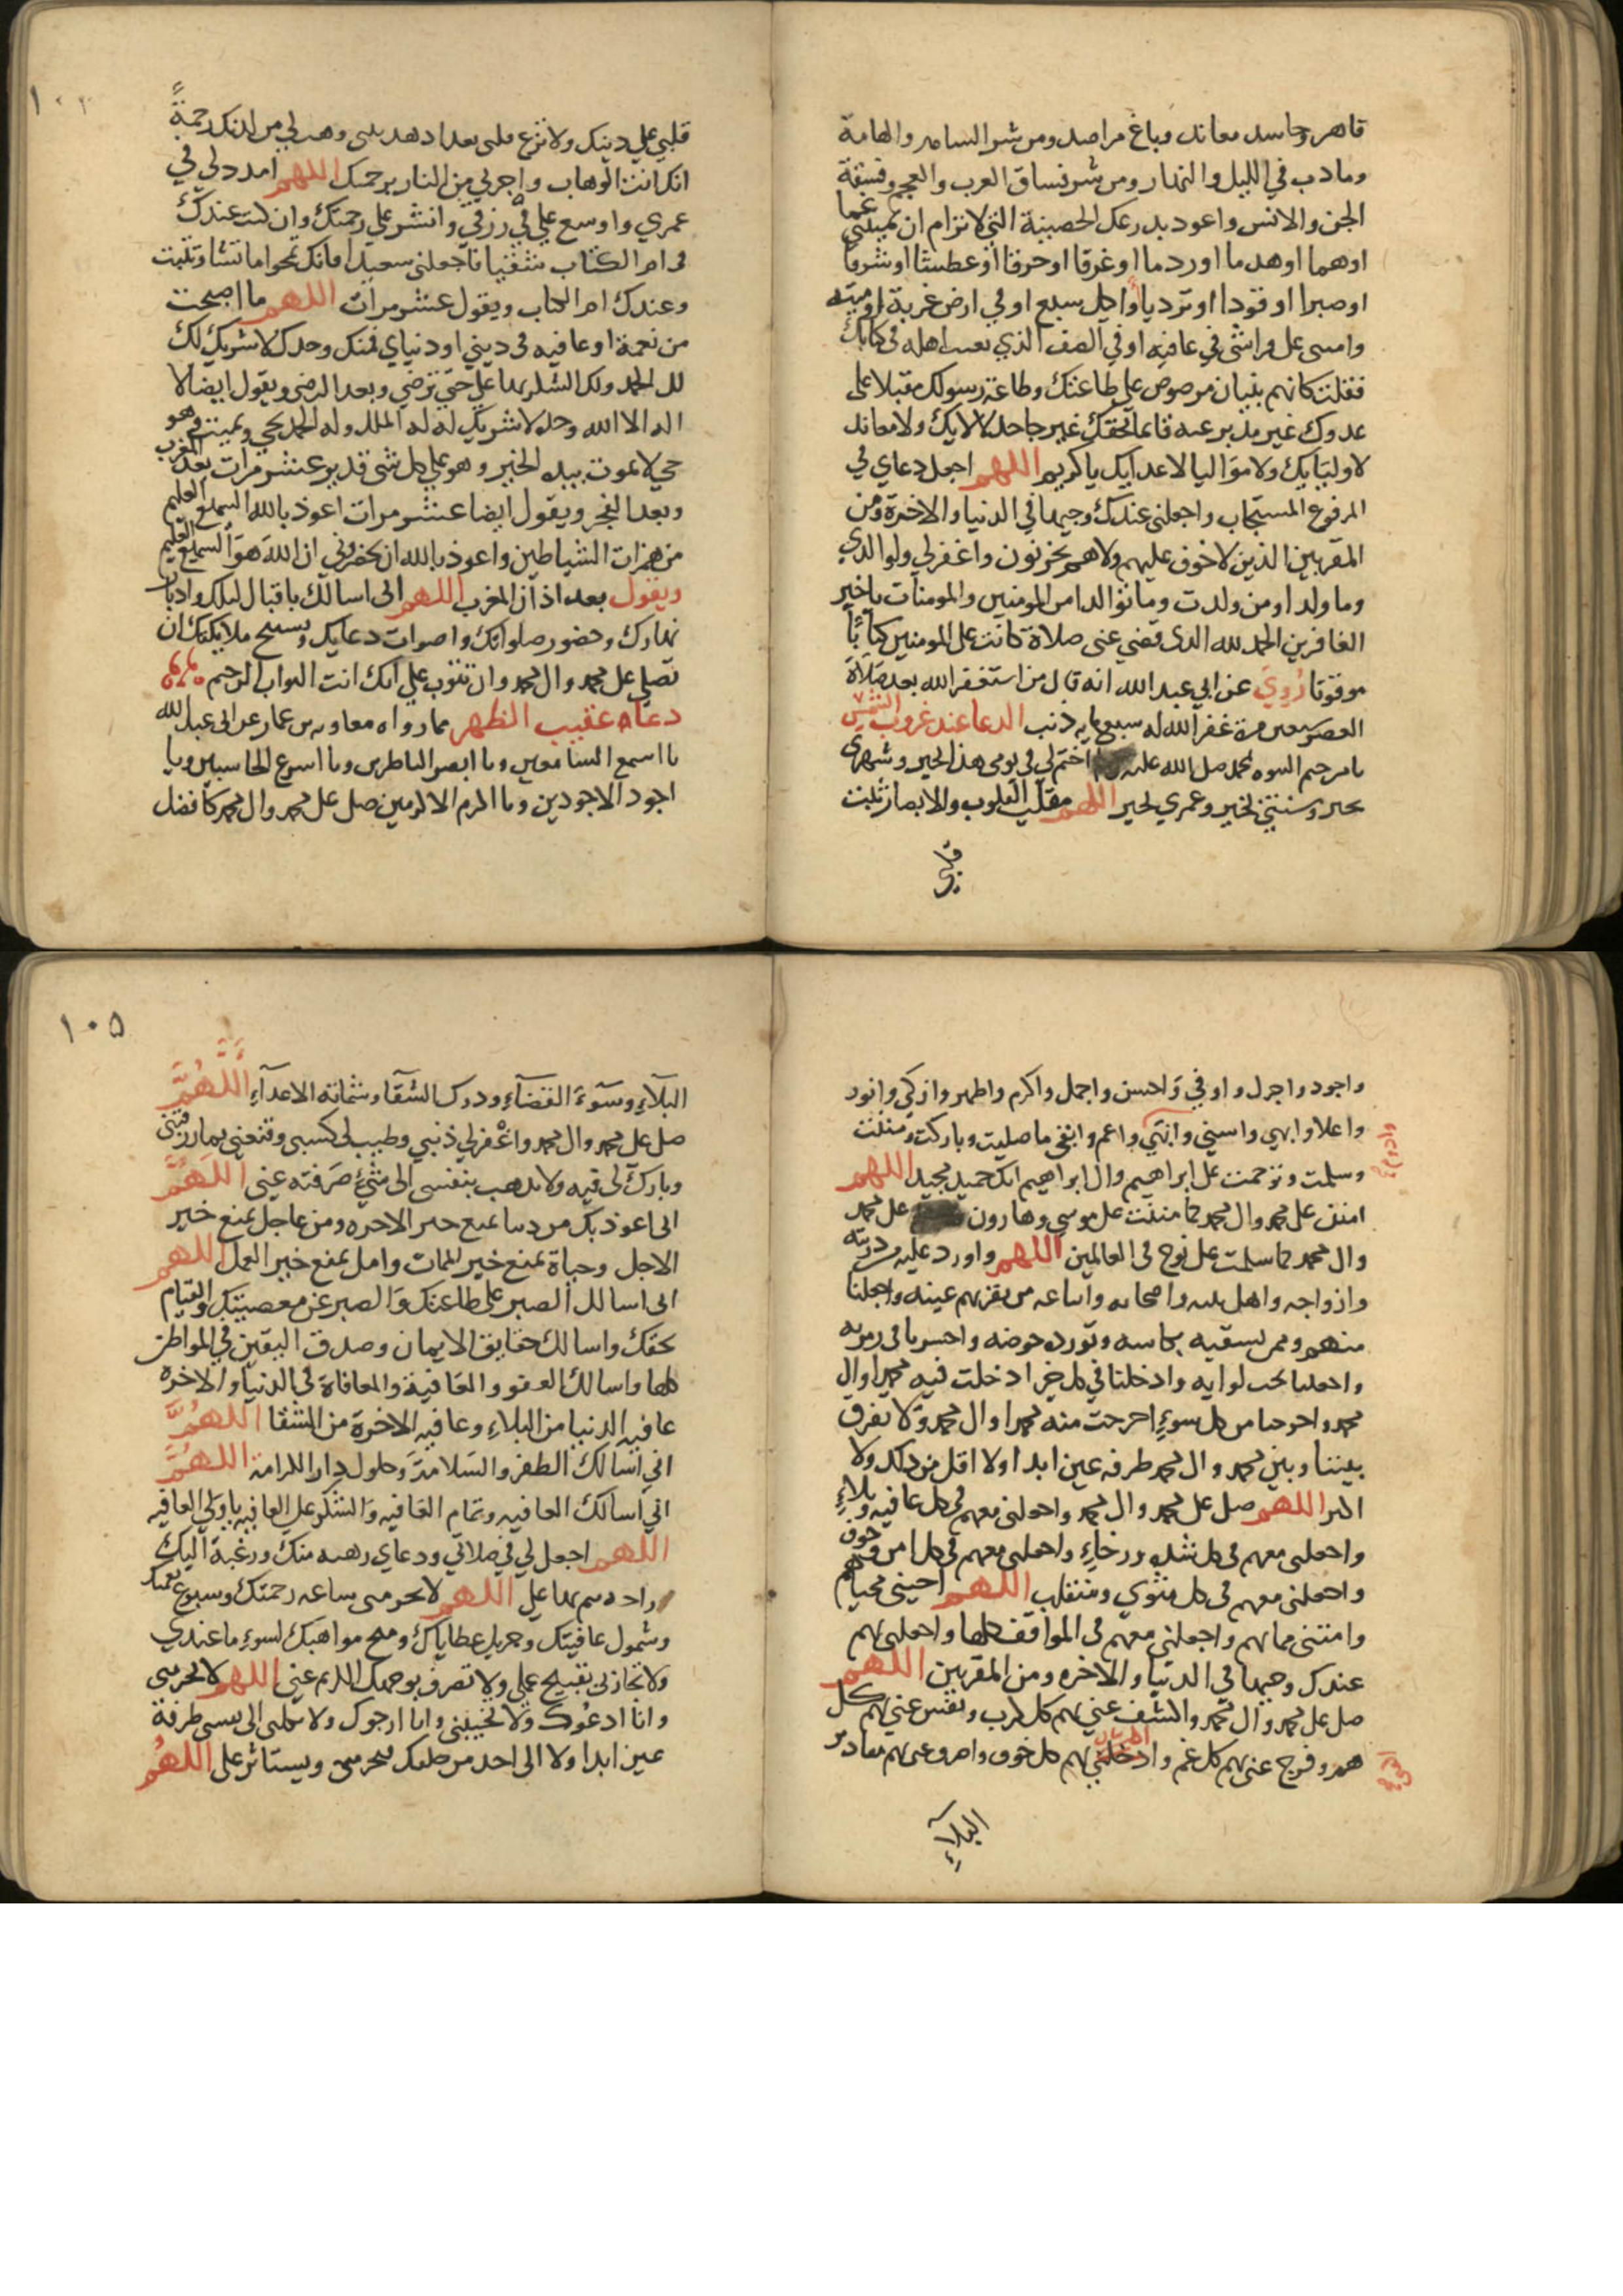 قاهر وحاسد معاند وباغ مراصد ومن شر السامه والهامة
وما دب في الليل والنهار ومن شر فساق العرب والعجم وفسقة
الجن والانس واعوذ بدرعك الحصينة التي لا ترام ان تميتني غما
اوهما اوهدما اوردما اوغرقا اوحرقا اوعطشا اوشرقا
اوصبرا اوقودا اوترديا واكل سبع اوفي ارض غربة اوميتة
وامسى على فراشى في عافيه اوفي الصف الذي نعت اهله في كتابك
فقلت كانهم بنيان مرصوص على طاعتك وطاعة رسولك مقبلا على
عدوك غير مدبر عنه قائما بحقك غير جاحد لالايك ولا معاند
لاوليايك ولا مواليا لاعدايك يا كريم اللهم اجعل دعاي في
المرفوع المستجاب واجعلني عندك وجيها في الدنيا والاخرة ومن
المقربين الذين لا خوف عليهم ولاهم يحزنون واغفرلي ولوالدي
وما ولدا ومن ولدت وما توالدا من المومنين والمومنات يا خير
الغافرين الحمد لله الذي قضى عنى صلاة كانت على المومنين كتابا
موقوتا رُوِيَ عن ابي عبد الله انه قال من استغفر الله بعد صلاة
العصر سبعين مرة غفر الله له سبعمايه ذنب الدعا عند غروب الشمس
يا من ختم النبوه بمحمد صلى الله عليه اختم لي في يومي هذا بخير وشهري
بخير وسنتي بخير وعمري بخير اللهم مقلب القلوب والابصار ثبت
قلبي
١٠٢
قلبي على دينك ولا تزغ قلبى بعد اذ هديتنى وهب لي من لدنك رحمةً
انك انت الوهاب واجرني من النار برحمتك اللهم امدد لي في
عمري واوسع علي في رزقي وانشر علي رحمتك وان كنت عندك
في ام الكتاب شقيا فاجعلني سعيدا فانك تمحوا ما تشا وتثبت
وعندك ام الكتاب ويقول عشر مرات اللهم ما اصبحت
من نعمة اوعافيه في ديني اودنياي فمنك وحدك لا شريك لك
لك الحمد ولك الشكر بها علي حتى ترضي وبعد الرضى ويقول ايضا لا
اله الا الله وحده لا شريك له له الملك وله الحمد يحي ويميت وهو
حي لا يموت بيده الخير وهو على كل شى قدير عشر مرات بعد المغرب
وبعد الفجر ويقول ايضا عشر مرات اعوذ بالله السميع العليم
من همزات الشياطين واعوذ بالله ان يحضروني ان الله هو السميع العليم
ويقول بعد اذان المغرب اللهم انى اسالك باقبال ليلك وادبار
نهارك وحضور صلواتك واصوات دعايك وتسبيح ملايكتك ان
تصلي على محمد وال محمد وان تتوب علي انك انت التواب الرحيم
دعاء عقيب الظهر مما رواه معاويه بن عمار عن ابى عبد الله
يا اسمع السامعين ويا ابصر الناظرين ويا اسرع الحاسبين ويا
اجود الاجودين ويا اكرم الاكرمين صل على محمد وال محمد كافضل
واجود واجزل واوفي واحسن واجمل واكرم واطهر وازكي وانور
واعلا وابهي واسني وانمي واعم وابقي ما صليت وباركت ومننت
وسلمت وترحمت على ابراهيم وال ابراهيم انك حميد مجيد اللهم
امنن على محمد وال محمد كما مننت على موسى وهارون على محمد
وال محمد كما سلمت على نوح في العالمين اللهم واورد عليه ذريته
وازواجه واهل بيته واصحابه واتباعه من تقربهم عينه واجعلنا
منهم وممن تسقيه بكاسه وتورده حوضه واحشرنا في زمرته
واجعلنا تحت لوايه وادخلنا في كل خير ادخلت فيه محمدا وال
محمد واخرجنا من كل سوء اخرجت منه محمدا وال محمد ولا تفرق
بيننا وبين محمد وال محمد طرفه عين ابدا ولا اقل من ذلك ولا
اكثر اللهم صل على محمد وال محمد واجعلنى معهم في كل عافيه وبلاء
واجعلنى معهم في كل شدة ورخاء واجعلنى معهم في كل امن وخوف
واجعلنى معهم في كل مثوي ومنقلب اللهم احيني محياهم
وامتني مماتهم واجعلني معهم في المواقف كلها واجعلنى بهم
عندك وجيها في الدنيا والاخره ومن المقربين اللهم
صل على محمد وال محمد واكشف عني بهم كل كرب ونفس عني بهم كل
هم وفرج عني بهم كل غم وادخلني بهم كل خوف واصرف عنى بهم مقادير
البلاء
١٠٥
البلاء وسوء القضاء ودرك الشقا وشماتة الاعداء اللهم
صل على محمد وال محمد واغفر لي ذنبي وطيب لى كسبى وقنعني بما رزقتني
وبارك لى فيه ولا تذهب بنفسى الى شئ صرفته عني اللهم
انى اعوذ بك من دنيا تمنع خير الاخره ومن عاجل يمنع خير
الاجل وحياة تمنع خير الممات وامل يمنع خير العمل اللهم
انى اسالك الصبر على طاعتك والصبر عن معصيتك والقيام
بحقك واسالك حقايق الايمان وصدق اليقين في المواطن
كلها واسالك العفو والعافية والمعافاة في الدنيا والاخره
عافيه الدنيا من البلاء وعافيه الاخرة من الشقا اللهم
اني اسالك الظفر والسلامة وحلول دار الكرامة اللهم
اني اسالك العافيه وتمام العافيه والشكر على العافيه يا ولي العافيه
اللهم اجعل لي في صلاتي ودعاي رهبه منك ورغبة اليك
وراحه تمن بها علي اللهم لا تحرمنى سعه رحمتك وسبوغ نعمتك
وشمول عافيتك وجزيل عطاياك ومنح مواهبك لسوء ما عندي
ولا تجازنى بقبيح عملي ولا تصرف بوجهك الكريم عني اللهم لا تحرمني
وانا ادعوك ولا تخيبني وانا ارجوك ولا تكلنى الى نفسى طرفة
عين ابدا ولا الى احد من خلقك فيحرمنى ويستاثر على اللهم